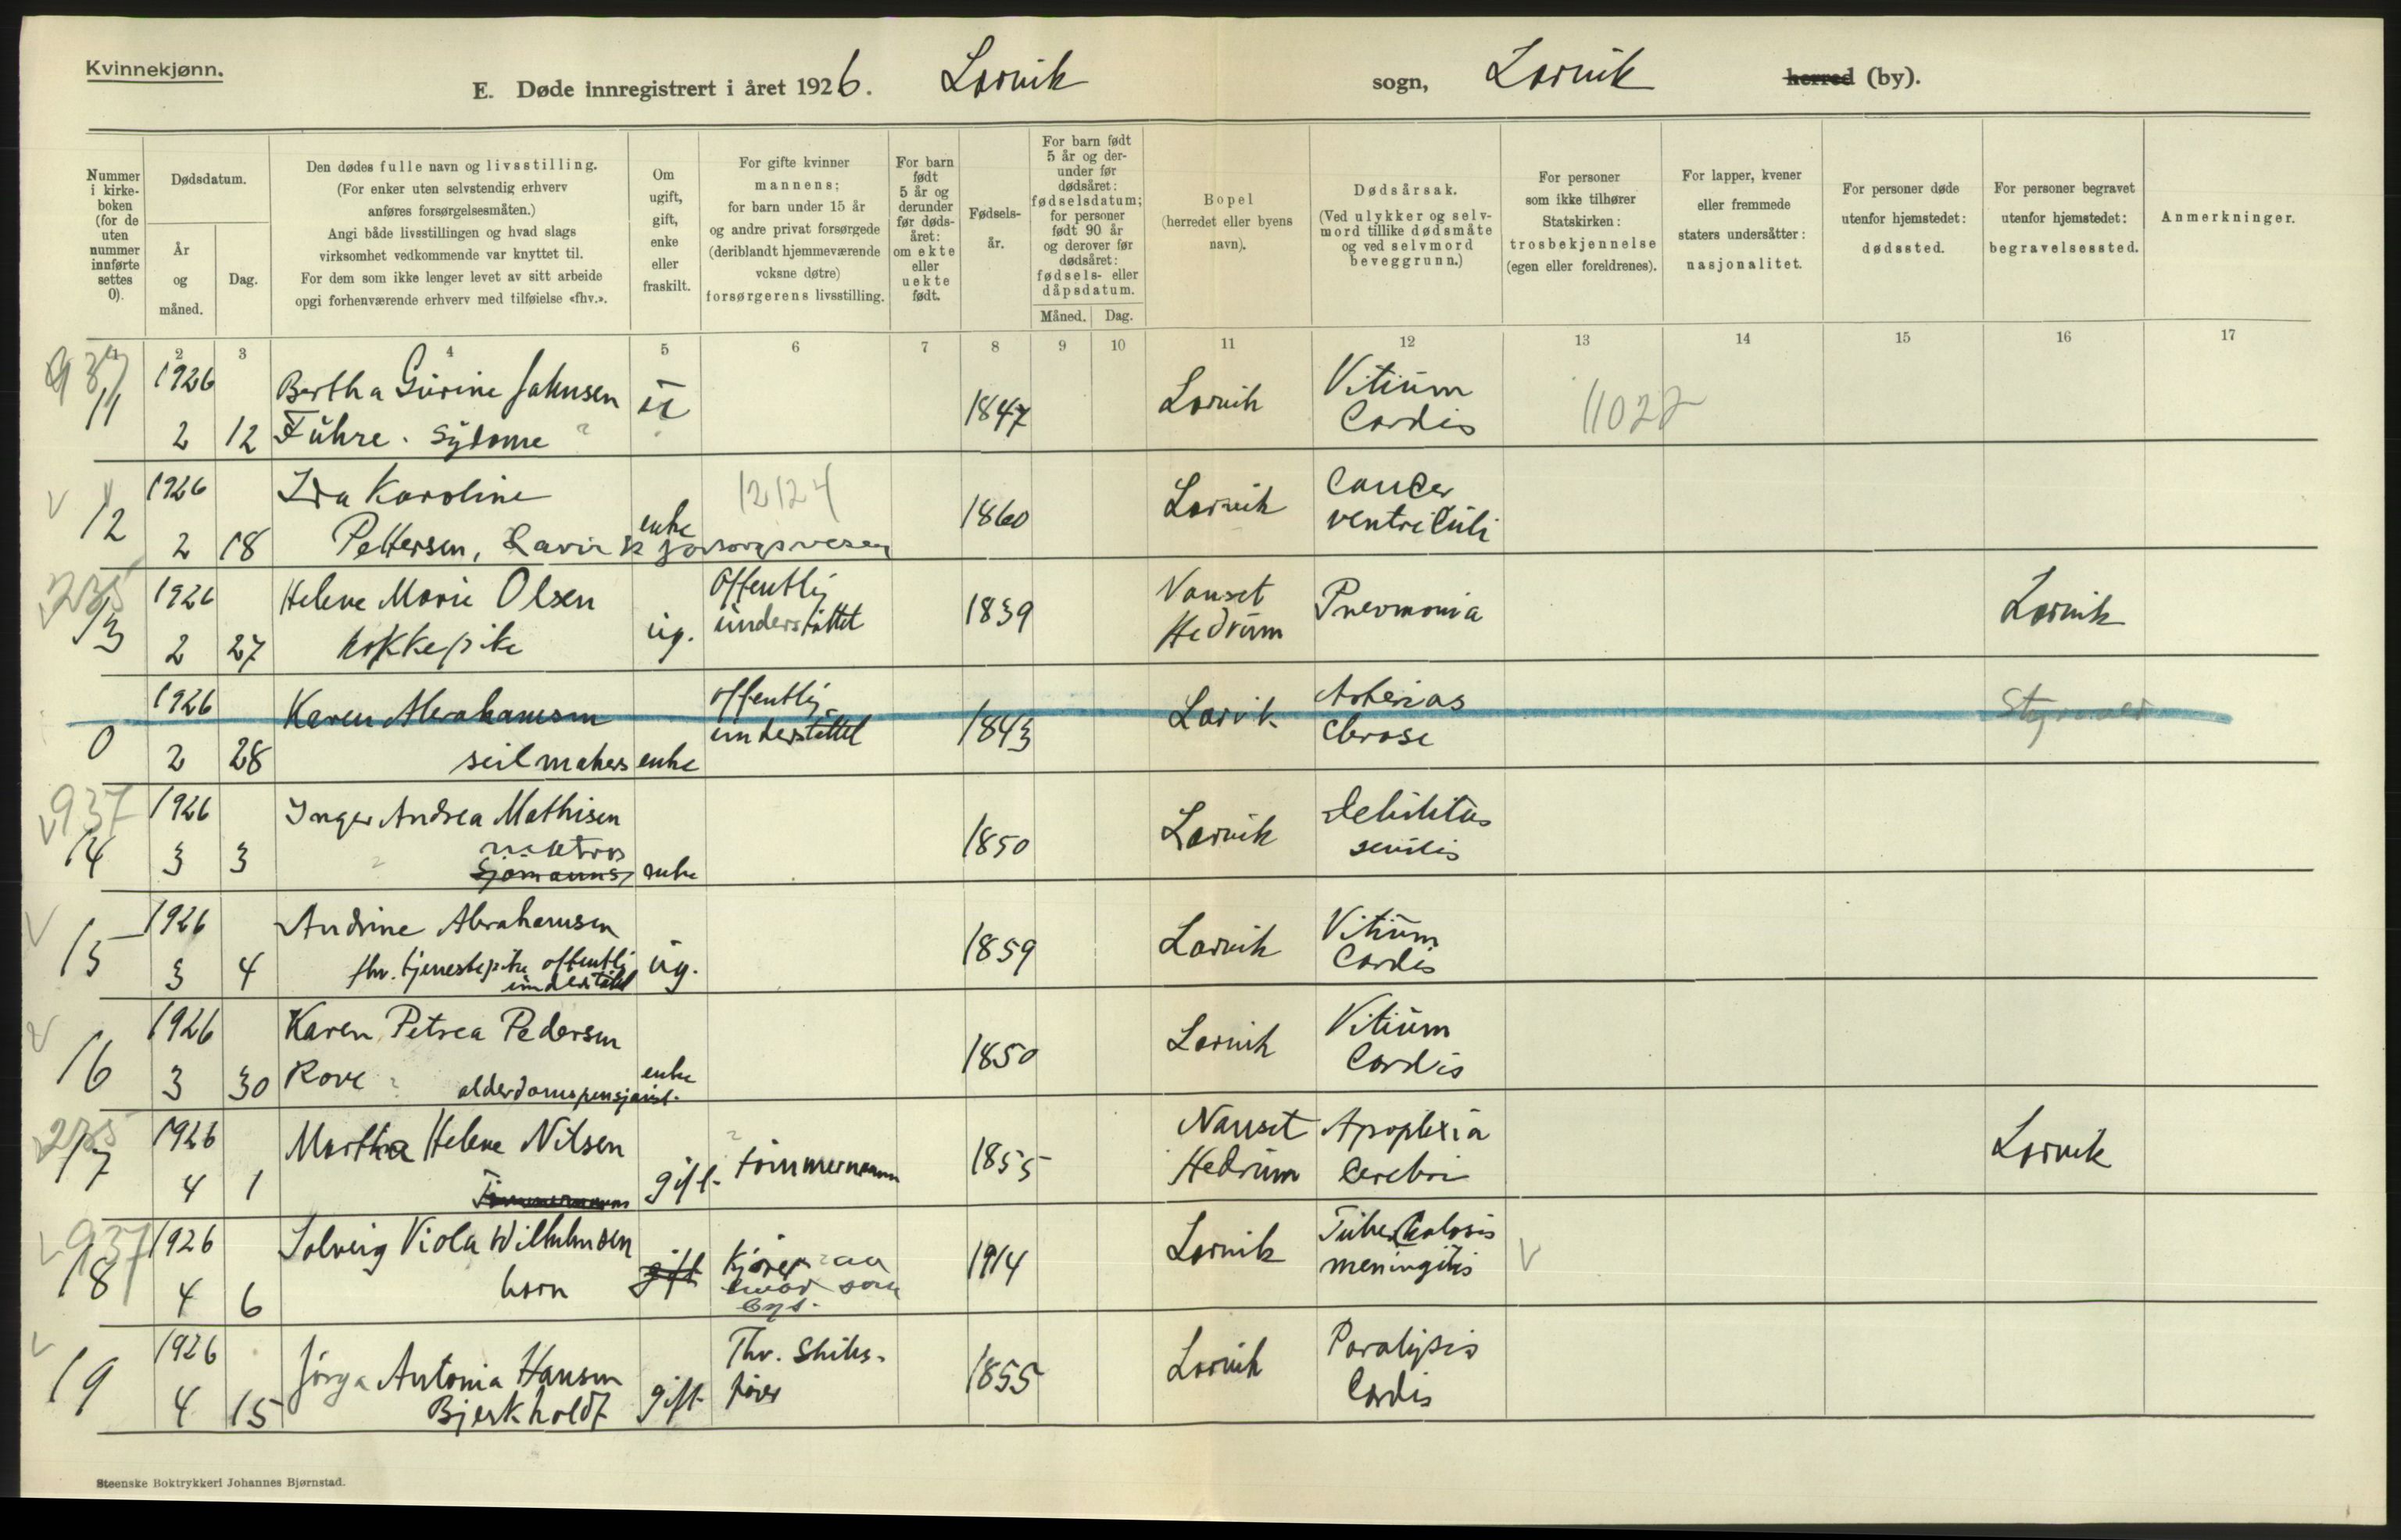 Kvinnekjønn.
E. Døde innregistrert i året 1926. Larvik sogn, Larvik herred (by).
Nummer i kirke-boken (for de uten nummer innførte settes 0).
Dødsdatum.
År og måned.
Dag.
Den dødes fulle navn og livsstilling.
(For enker uten selvstendig erhverv
anføres forsørgelsesmåten.)
Angi både livsstillingen og hvad slags
virksomhet vedkommende var knyttet til.
For dem som ikke lenger levet av sitt arbeide
opgi forhenværende erhverv med tilføielse «fhv.».
Om ugift, gift, enke eller fraskilt.
For gifte kvinner
mannens;
for barn under 15 år
og andre privat forsørgede
(deriblandt hjemmeværende
voksne døtre)
forsørgerens livsstilling.
For barn født 5 år og derunder før døds-året: om ekte eller uekte født.
Fødsels-år.
For barn født
5 år og der-
under før
dødsåret:
fødselsdatum;
for personer
født 90 år
og derover før
dødsåret:
fødsels- eller
dåpsdatum.
Måned. Dag.
Bopel
(herredet eller byens
navn).
Dødsårsak.
(Ved ulykker og selv-
mord tillike dødsmåte
og ved selvmord
beveggrunn.)
For personer
som ikke tilhører
Statskirken:
trosbekjennelse
(egen eller foreldrenes).
For lapper, kvener
eller fremmede
staters undersåtter:
nasjonalitet.
For personer døde
utenfor hjemstedet:
dødssted.
For personer begravet
utenfor hjemstedet:
begravelsessted.
Anmerkninger.
1 2 3 4 5 6 7 8 9 10 11 12 13 14 15 16 17
937
11 1926 Bertha Gurine Jahnsen u 1847 Larvik Vitium
2 12 Fuhre. Sydame ? Cordis 11022
12 1926 Ida Karoline 12124 1860 Larvik Cancer
2 18 Pettersen, Larvik forsorgsvesen enke ventriculi
235
13 1926 Helene Marie Olsen ug. Offentlig 1839 Nanset Pneomonia Larvik
2 27 kokkepike understøttet Hedrum
0 1926 Karen Abrahamsen offentlig 1843 Larvik Arterios
2 28 seilmakers enke understøttet clerose
937
14 1926 Inger Andrea Mathisen 1850 Larvik debilitas
3 3 matros senilis
Sjømanns enke
15 1926 Andrine Abrahamsen ug. 1859 Larvik Vitium
3 4 fhv. tjenestepike offentlig Cordis
understøttet
16 1926 Karen Petrea Pedersen 1850 Larvik Vitium
3 30 Rove ? alderdomspensjonist. enke Cordis
235
17 1926 Martha Helene Nilsen gift tømmermann 1855 Nanset Apoplexia Larvik
4 1 Hedrum Cerebri
937
18 1926 Solveig Viola Wilhelmsen gift kjører 1914 Larvik Tuberkulosis
4 6 barn meningitis
19 1926 Antonia Hansen gift Fhv. Skibs- 1855 Larvik Paralysis
4 15 Bjerkholdt fører Cordis
Steenske Boktrykkeri Johannes Bjørnstad.